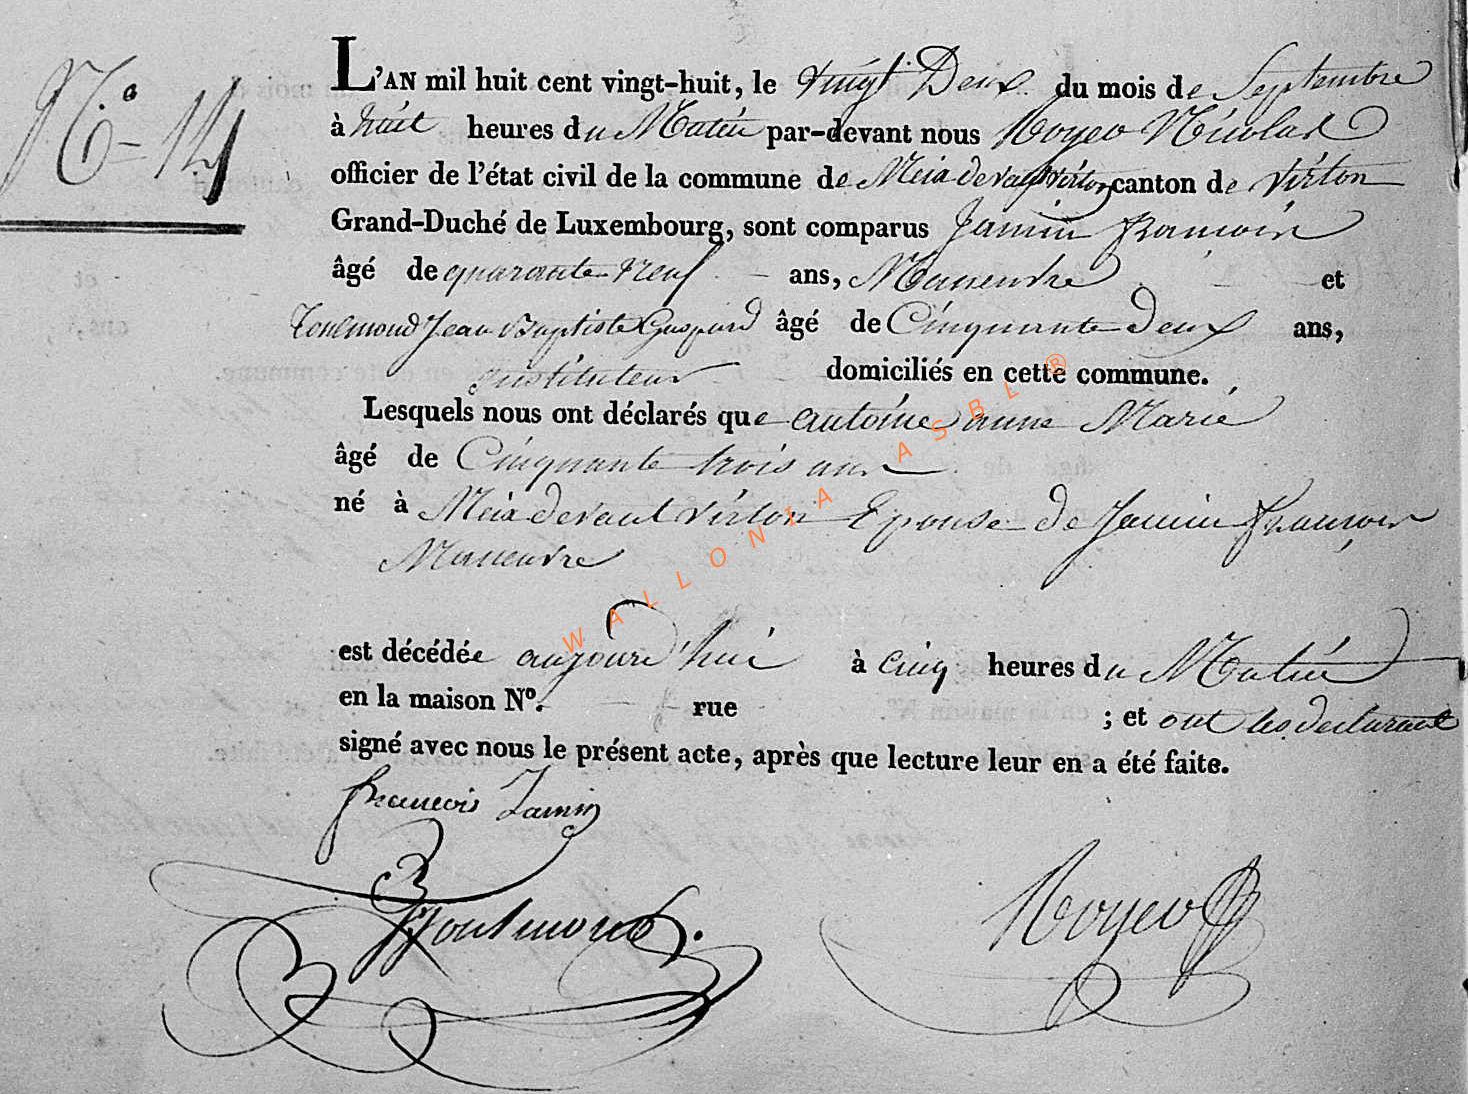 N.° 14
L'AN mil huit cent vingt-huit, le vingt Deux du mois de Septembre
à huit heures du Matin par-devant nous Noyer Nicolas
officier de l'état civil de la commune de Meix devant virton canton de virton
Grand-Duché de Luxembourg, sont comparus Jamin françois
âgé de quarante Neuf ans, Maneuvre et
Toulmond Jean Baptiste Gaspard âgé de Cinquante Deux ans,
instituteur domiciliés en cette commune.
Lesquels nous ont déclarés que antoine anne Marie
âgé de Cinquante trois ans
né à Meix devant virton Epouse de Jamin françois
Maneuvre
est décédée aujourd'hui à cinq heures du Matin
en la maison Nº. rue ; et ont les declarant
signé avec nous le présent acte, après que lecture leur en a été faite.
francois Jamin
Toulmond.
Noyer
WALLONIA ASBL ®